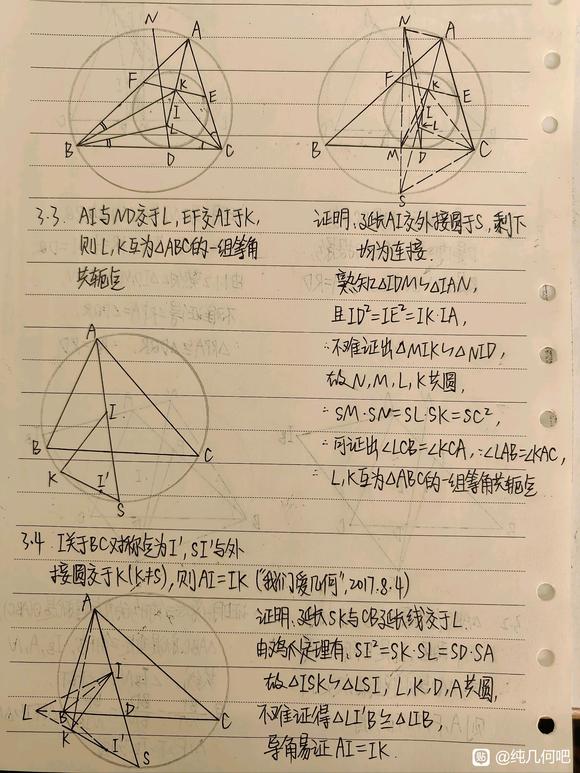 N
A
F
K
E
I
L
B
D
C
N
A
F
K
E
I
L
B
M
D
C
S
3.3. AI与ND交于L,EF交AI于K,
则L,K互为△ABC的一组等角
共轭点
证明:延长AI交外接圆于S,剩下
均为连接.
熟知△IDM∽△IAN,
且ID²=IE²=IK·IA,
∴不难证出△MIK∽△NID,
故N,M,L,K共圆,
∴SM·SN=SL·SK=SC²,
∴可证出∠LCB=∠KCA,∵∠LAB=∠KAC,
∴L,K互为△ABC的一组等角共轭点
A
I
B
C
K
I'
S
3.4. I关于BC对称点为I',SI'与外
接圆交于K(K≠S),则AI=IK("我们爱几何",2017.8.4)
A
I
L
B
D
C
K
I'
S
证明:延长SK与CB延长线交于L.
由鸡爪定理有,SI²=SK·SL=SD·SA
故△ISK∽△LSI,L,K,D,A共圆,
不难证得△LI'B≌△LIB,
导角易证AI=IK.
贴 @纯几何吧